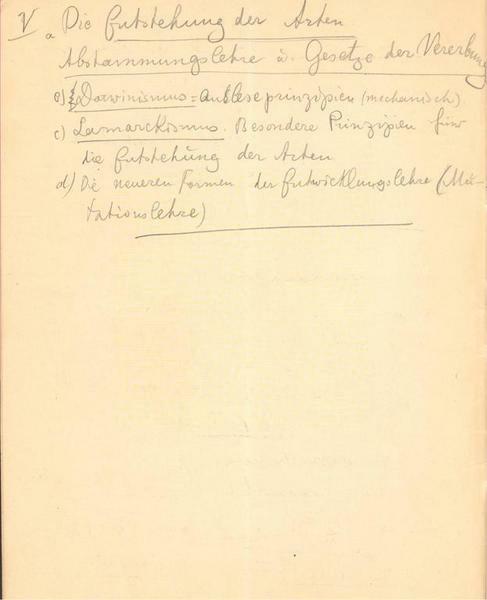 V a Die Entstehung der Arten
Abstammungslehre u. Gesetze der Vererbung
b) Darwinismus = Ausleseprinzipien (mechanisch)
c) Lamarckismus. Besondere Prinzipien für
die Entstehung der Arten
d) Die neueren Formen der Entwicklungslehre (Mu-
tationslehre)